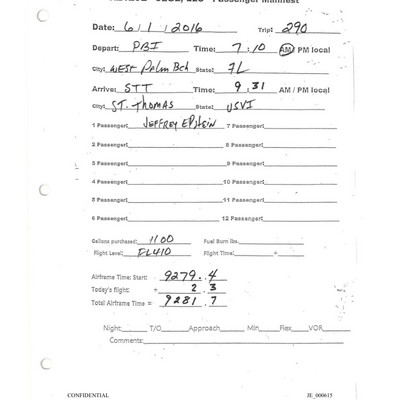 Passenger Manifest
Date: 6 / 1 / 2016 Trip: 290
Depart: PBI Time: 7 : 10 AM / PM local
City: WEST PALM BCH State: FL
Arrive: STT Time: 9 : 31 AM / PM local
City: ST. THOMAS State: USVI
1 Passenger: JEFFREY EPSTEIN 7 Passenger:
2 Passenger: 8 Passenger:
3 Passenger: 9 Passenger:
4 Passenger: 10 Passenger:
5 Passenger: 11 Passenger:
6 Passenger: 12 Passenger:
Gallons purchased: 1100 Fuel Burn lbs.
Flight Level: FL410 Flight Time: +
Airframe Time: Start: 9279.4
Today's flight: + 2.3
Total Airframe Time = 9281.7
Night: T/O Approach Min Flex VOR
Comments:
CONFIDENTIAL JE_000615